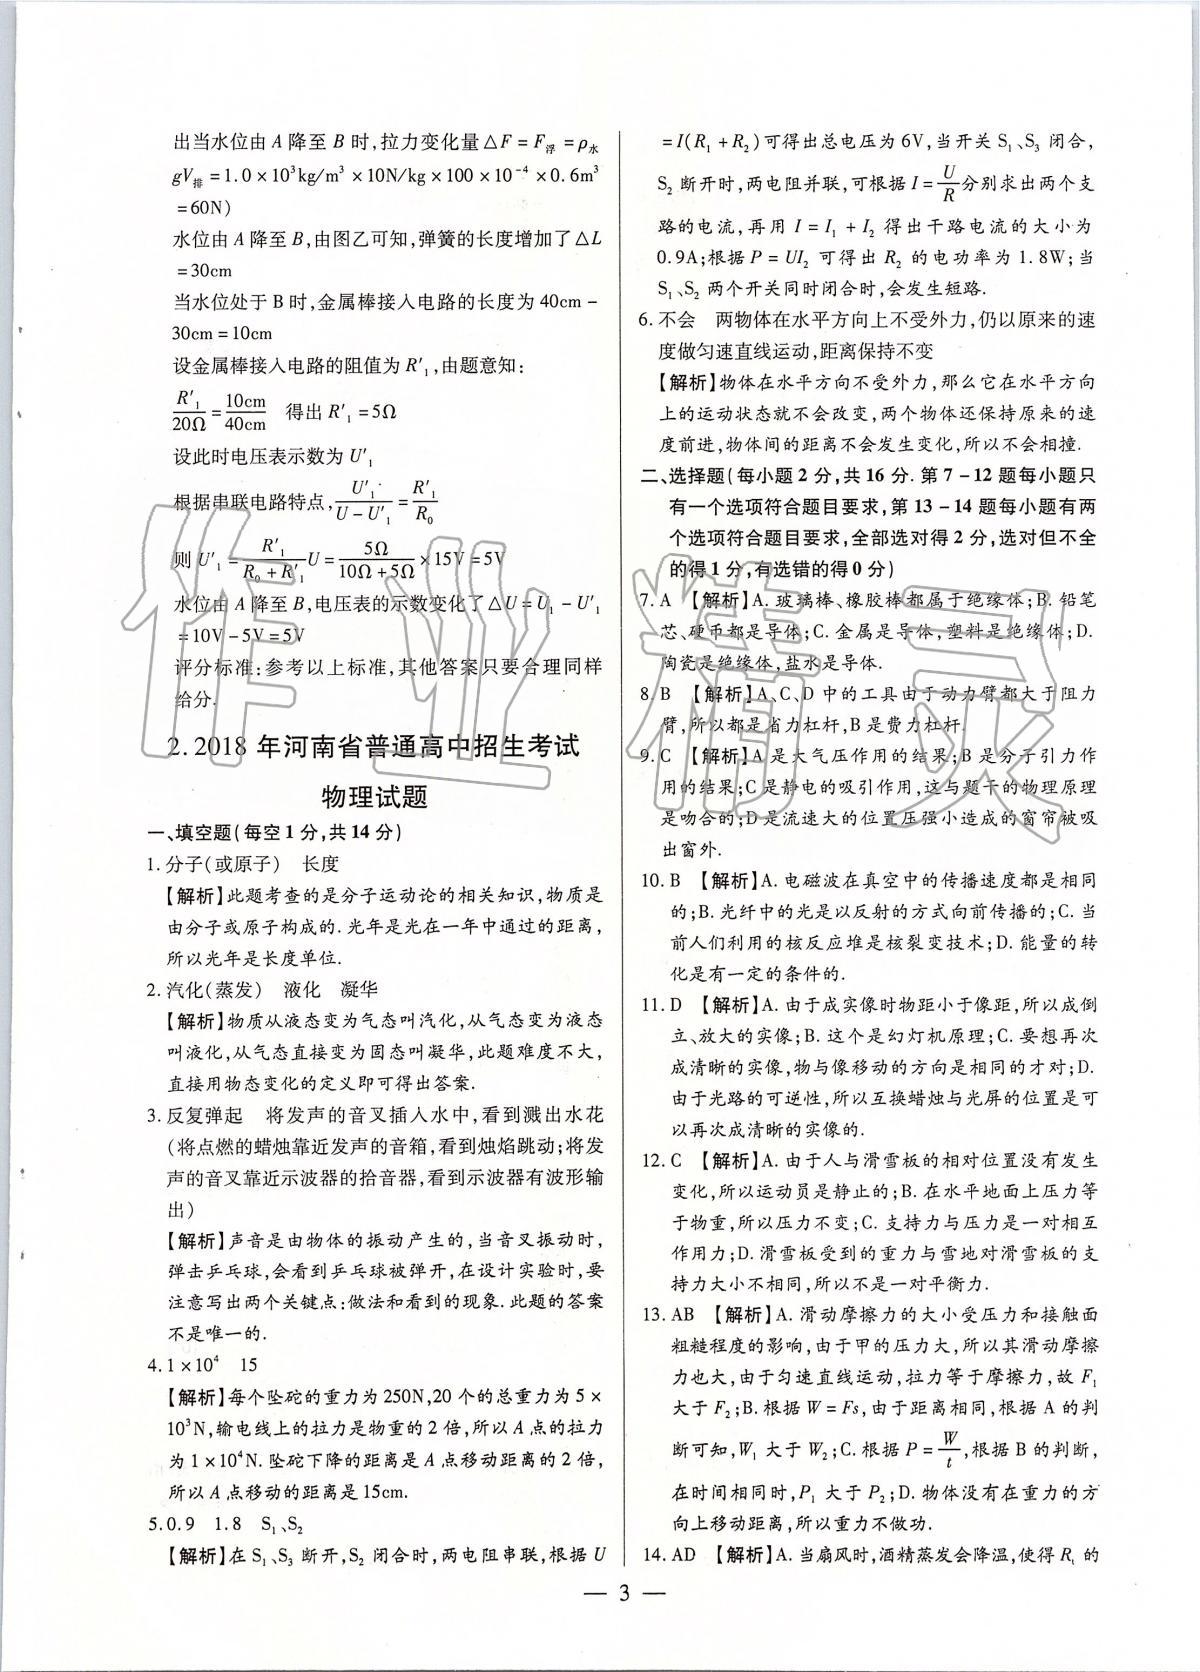 出当水位由 A 降至 B 时,拉力变化量 △F = F浮 = ρ水
gV排 = 1.0 × 10³kg/m³ × 10N/kg × 100 × 10⁻⁴ × 0.6m³
= 60N)
水位由 A 降至 B,由图乙可知,弹簧的长度增加了 △L
= 30cm
当水位处于 B 时,金属棒接入电路的长度为 40cm -
30cm = 10cm
设金属棒接入电路的阻值为 R'₁,由题意知:
R'₁/20Ω = 10cm/40cm 得出 R'₁ = 5Ω
设此时电压表示数为 U'₁
根据串联电路特点, U'₁/(U - U'₁) = R'₁/R₀
则 U'₁ = R'₁/(R₀ + R'₁) U = 5Ω/(10Ω + 5Ω) × 15V = 5V
水位由 A 降至 B,电压表的示数变化了 △U = U₁ - U'₁
= 10V - 5V = 5V
评分标准:参考以上标准,其他答案只要合理同样
给分.
2. 2018 年河南省普通高中招生考试
物理试题
一、填空题(每空 1 分,共 14 分)
1. 分子(或原子) 长度
【解析】此题考查的是分子运动论的相关知识,物质是
由分子或原子构成的. 光年是光在一年中通过的距离,
所以光年是长度单位.
2. 汽化(蒸发) 液化 凝华
【解析】物质从液态变为气态叫汽化,从气态变为液态
叫液化,从气态直接变为固态叫凝华,此题难度不大,
直接用物态变化的定义即可得出答案.
3. 反复弹起 将发声的音叉插入水中,看到溅出水花
(将点燃的蜡烛靠近发声的音箱,看到烛焰跳动;将发
声的音叉靠近示波器的拾音器,看到示波器有波形输
出)
【解析】声音是由物体的振动产生的,当音叉振动时,
弹击乒乓球,会看到乒乓球被弹开,在设计实验时,要
注意写出两个关键点:做法和看到的现象. 此题的答案
不是唯一的.
4. 1 × 10⁴ 15
【解析】每个坠砣的重力为 250N,20 个的总重力为 5 ×
10³N,输电线上的拉力是物重的 2 倍,所以 A 点的拉力
为 1 × 10⁴N. 坠砣下降的距离是 A 点移动距离的 2 倍,
所以 A 点移动的距离是 15cm.
5. 0.9 1.8 S₁、S₂
【解析】在 S₁、S₃ 断开,S₂ 闭合时,两电阻串联,根据 U
= I(R₁ + R₂)可得出总电压为 6V,当开关 S₁、S₃ 闭合,
S₂ 断开时,两电阻并联,可根据 I = U/R 分别求出两个支
路的电流,再用 I = I₁ + I₂ 得出干路电流的大小为
0.9A;根据 P = UI₂ 可得出 R₂ 的电功率为 1.8W;当
S₁、S₂ 两个开关同时闭合时,会发生短路.
6. 不会 两物体在水平方向上不受外力,仍以原来的速
度做匀速直线运动,距离保持不变
【解析】物体在水平方向不受外力,那么它在水平方向
上的运动状态就不会改变,两个物体还保持原来的速
度前进,物体间的距离不会发生变化,所以不会相撞.
二、选择题(每小题 2 分,共 16 分. 第 7 - 12 题每小题只
有一个选项符合题目要求,第 13 - 14 题每小题有两
个选项符合题目要求,全部选对得 2 分,选对但不全
的得 1 分,有选错的得 0 分)
7. A 【解析】A. 玻璃棒、橡胶棒都属于绝缘体;B. 铅笔
芯、硬币都是导体;C. 金属是导体,塑料是绝缘体;D.
陶瓷是绝缘体,盐水是导体.
8. B 【解析】A、C、D 中的工具由于动力臂都大于阻力
臂,所以都是省力杠杆,B 是费力杠杆.
9. C 【解析】A 是大气压作用的结果;B 是分子引力作
用的结果;C 是静电的吸引作用,这与题干的物理原理
是吻合的;D 是流速大的位置压强小造成的窗帘被吸
出窗外.
10. B 【解析】A. 电磁波在真空中的传播速度都是相同
的;B. 光纤中的光是以反射的方式向前传播的;C. 当
前人们利用的核反应堆是核裂变技术;D. 能量的转
化是有一定的条件的.
11. D 【解析】A. 由于成实像时物距小于像距,所以成倒
立、放大的实像;B. 这个是幻灯机原理;C. 要想再次
成清晰的实像,物与像移动的方向是相同的才对;D.
由于光路的可逆性,所以互换蜡烛与光屏的位置是可
以再次成清晰的实像的.
12. C 【解析】A. 由于人与滑雪板的相对位置没有发生
变化,所以运动员是静止的;B. 在水平地面上压力等
于物重,所以压力不变;C. 支持力与压力是一对相互
作用力;D. 滑雪板受到的重力与雪地对滑雪板的支
持力大小不相同,所以不是一对平衡力.
13. AB 【解析】A. 滑动摩擦力的大小受压力和接触面
粗糙程度的影响,由于甲的压力大,所以其滑动摩擦
力也大,由于匀速直线运动,拉力等于摩擦力,故 F₁
大于 F₂;B. 根据 W = Fs,由于距离相同,根据 A 的判
断可知,W₁ 大于 W₂;C. 根据 P = W/t,根据 B 的判断,
在时间相同时,P₁ 大于 P₂;D. 物体没有在重力的方
向上移动距离,所以重力不做功.
14. AD 【解析】A. 当扇风时,酒精蒸发会降温,使得 R₁ 的
— 3 —
作业精灵